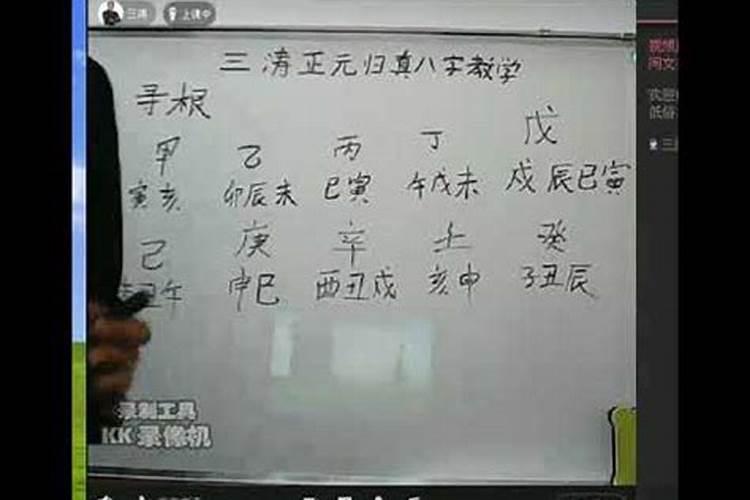 三涛
上课中
三涛正元归真八字教学
寻根
甲 乙 丙 丁 戊
寅亥 卯辰未 巳寅 午戌未 戌辰巳寅
己 庚 辛 壬 癸
丑午 申巳 酉丑戌 亥申 子丑辰
录制工具
KK 录像机